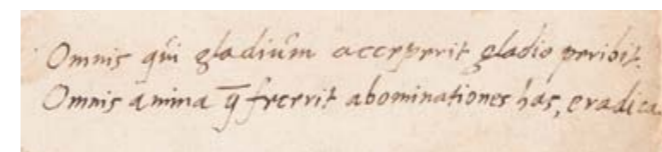 Omnis qui gladium acceperit gladio peribit.
Omnis anima q̄ fecerit abominationes has, eradica